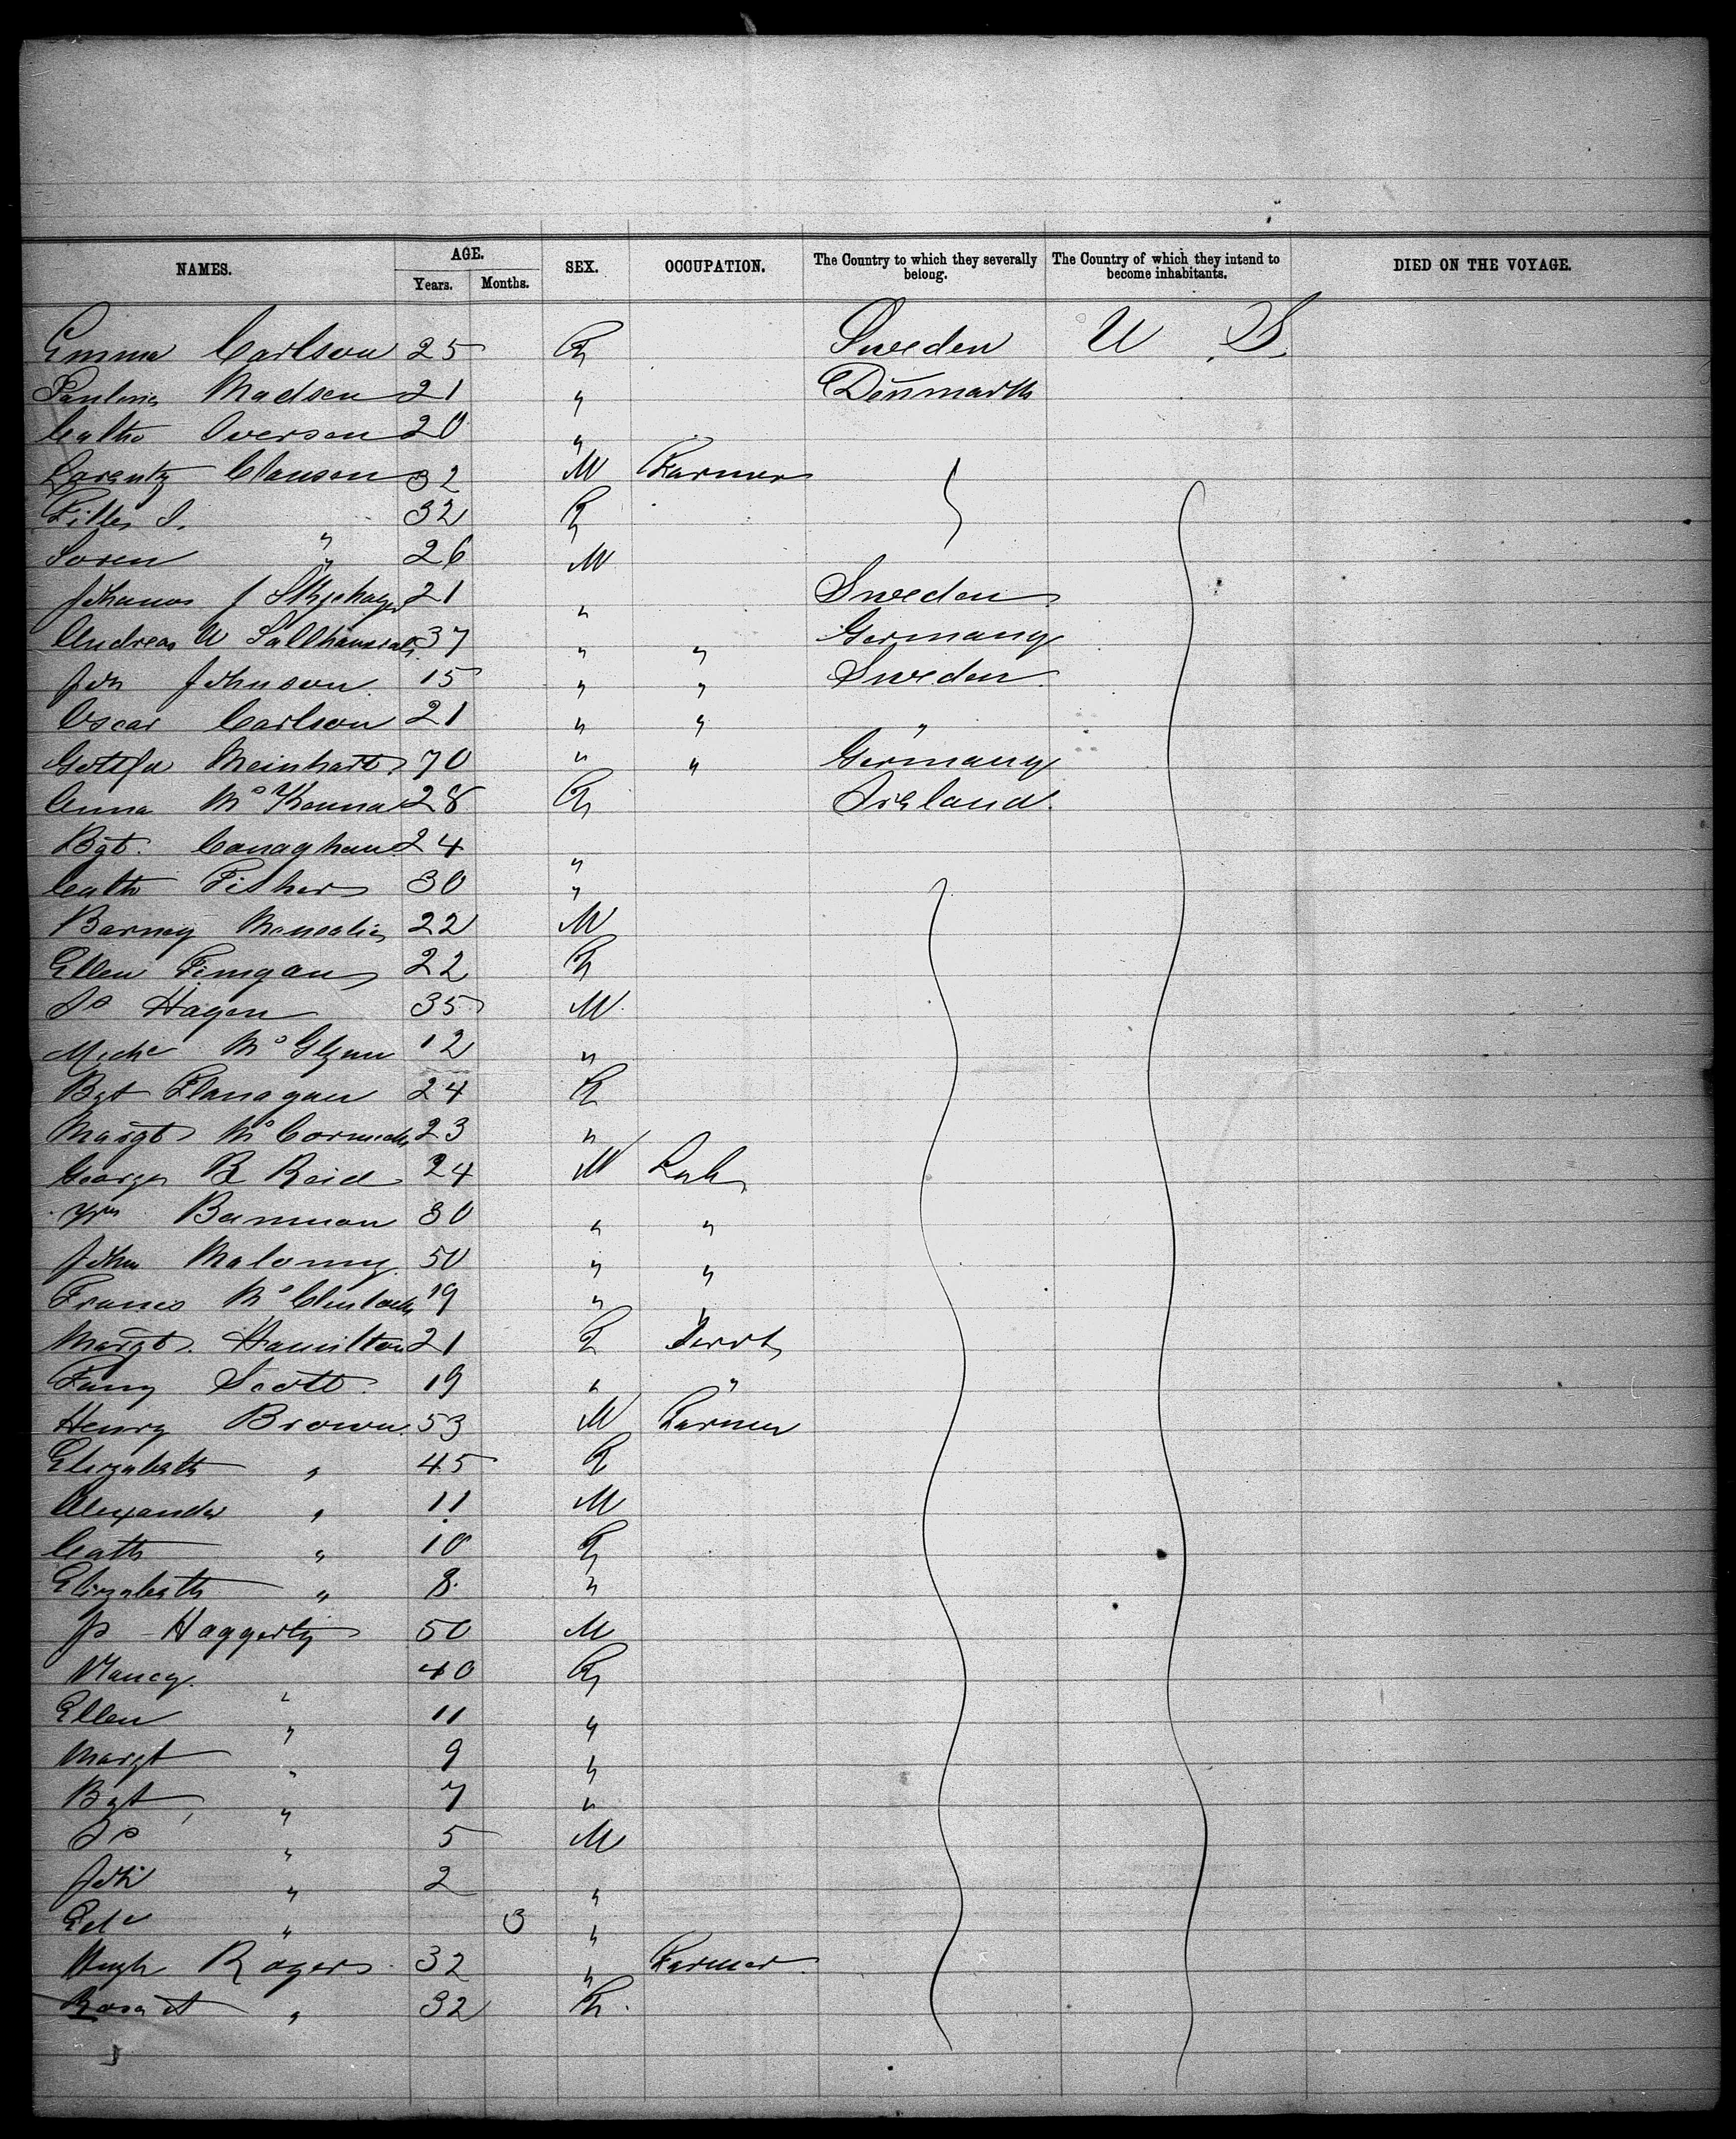 NAMES. AGE. Years. Months. SEX. OCCUPATION. The Country to which they severally belong. The Country of which they intend to become inhabitants. DIED ON THE VOYAGE.
Emma Carlson 25 F Sweden U S.
Madsen 21 " Denmark
Cathe Iversen 20 "
Lorentz Clausen 32 M Farmer
32 F
Soren " 26 M
21 " Sweden
Andreas 37 " " Germany
Joh Johnson 15 " " Sweden
Oscar Carlson 21 " " "
Meinhart 70 " " Germany
Anna McKenna 28 F Ireland.
Bgt. Conaghan 24 "
Cath Fisher 30 "
Barney 22 M
Ellen Finigan 22 F
Hagen 35 M
McGlynn 12 "
Bgt Flanagan 24 F
Margt McCormick 23 "
George R Reid 24 M Lab
Wm 30 " "
John Malonny 50 " "
Francis McClintock 19 " "
Margt. Hamilton 21 F Servt
Fany Scott 19 " "
Henry Brown 53 M Farmer
Elizabeth " 45 F
Alexander " 11 M
Cath " 10 F
Elizabeth " 8 "
Js Haggerty 50 M
Nancy " 40 F
Ellen " 11 "
Margt " 9 "
Bgt " 7 "
" 5 M
Joh " 2 "
Edd " 3 "
Hugh Rogers 32 " Farmer
" 32 F